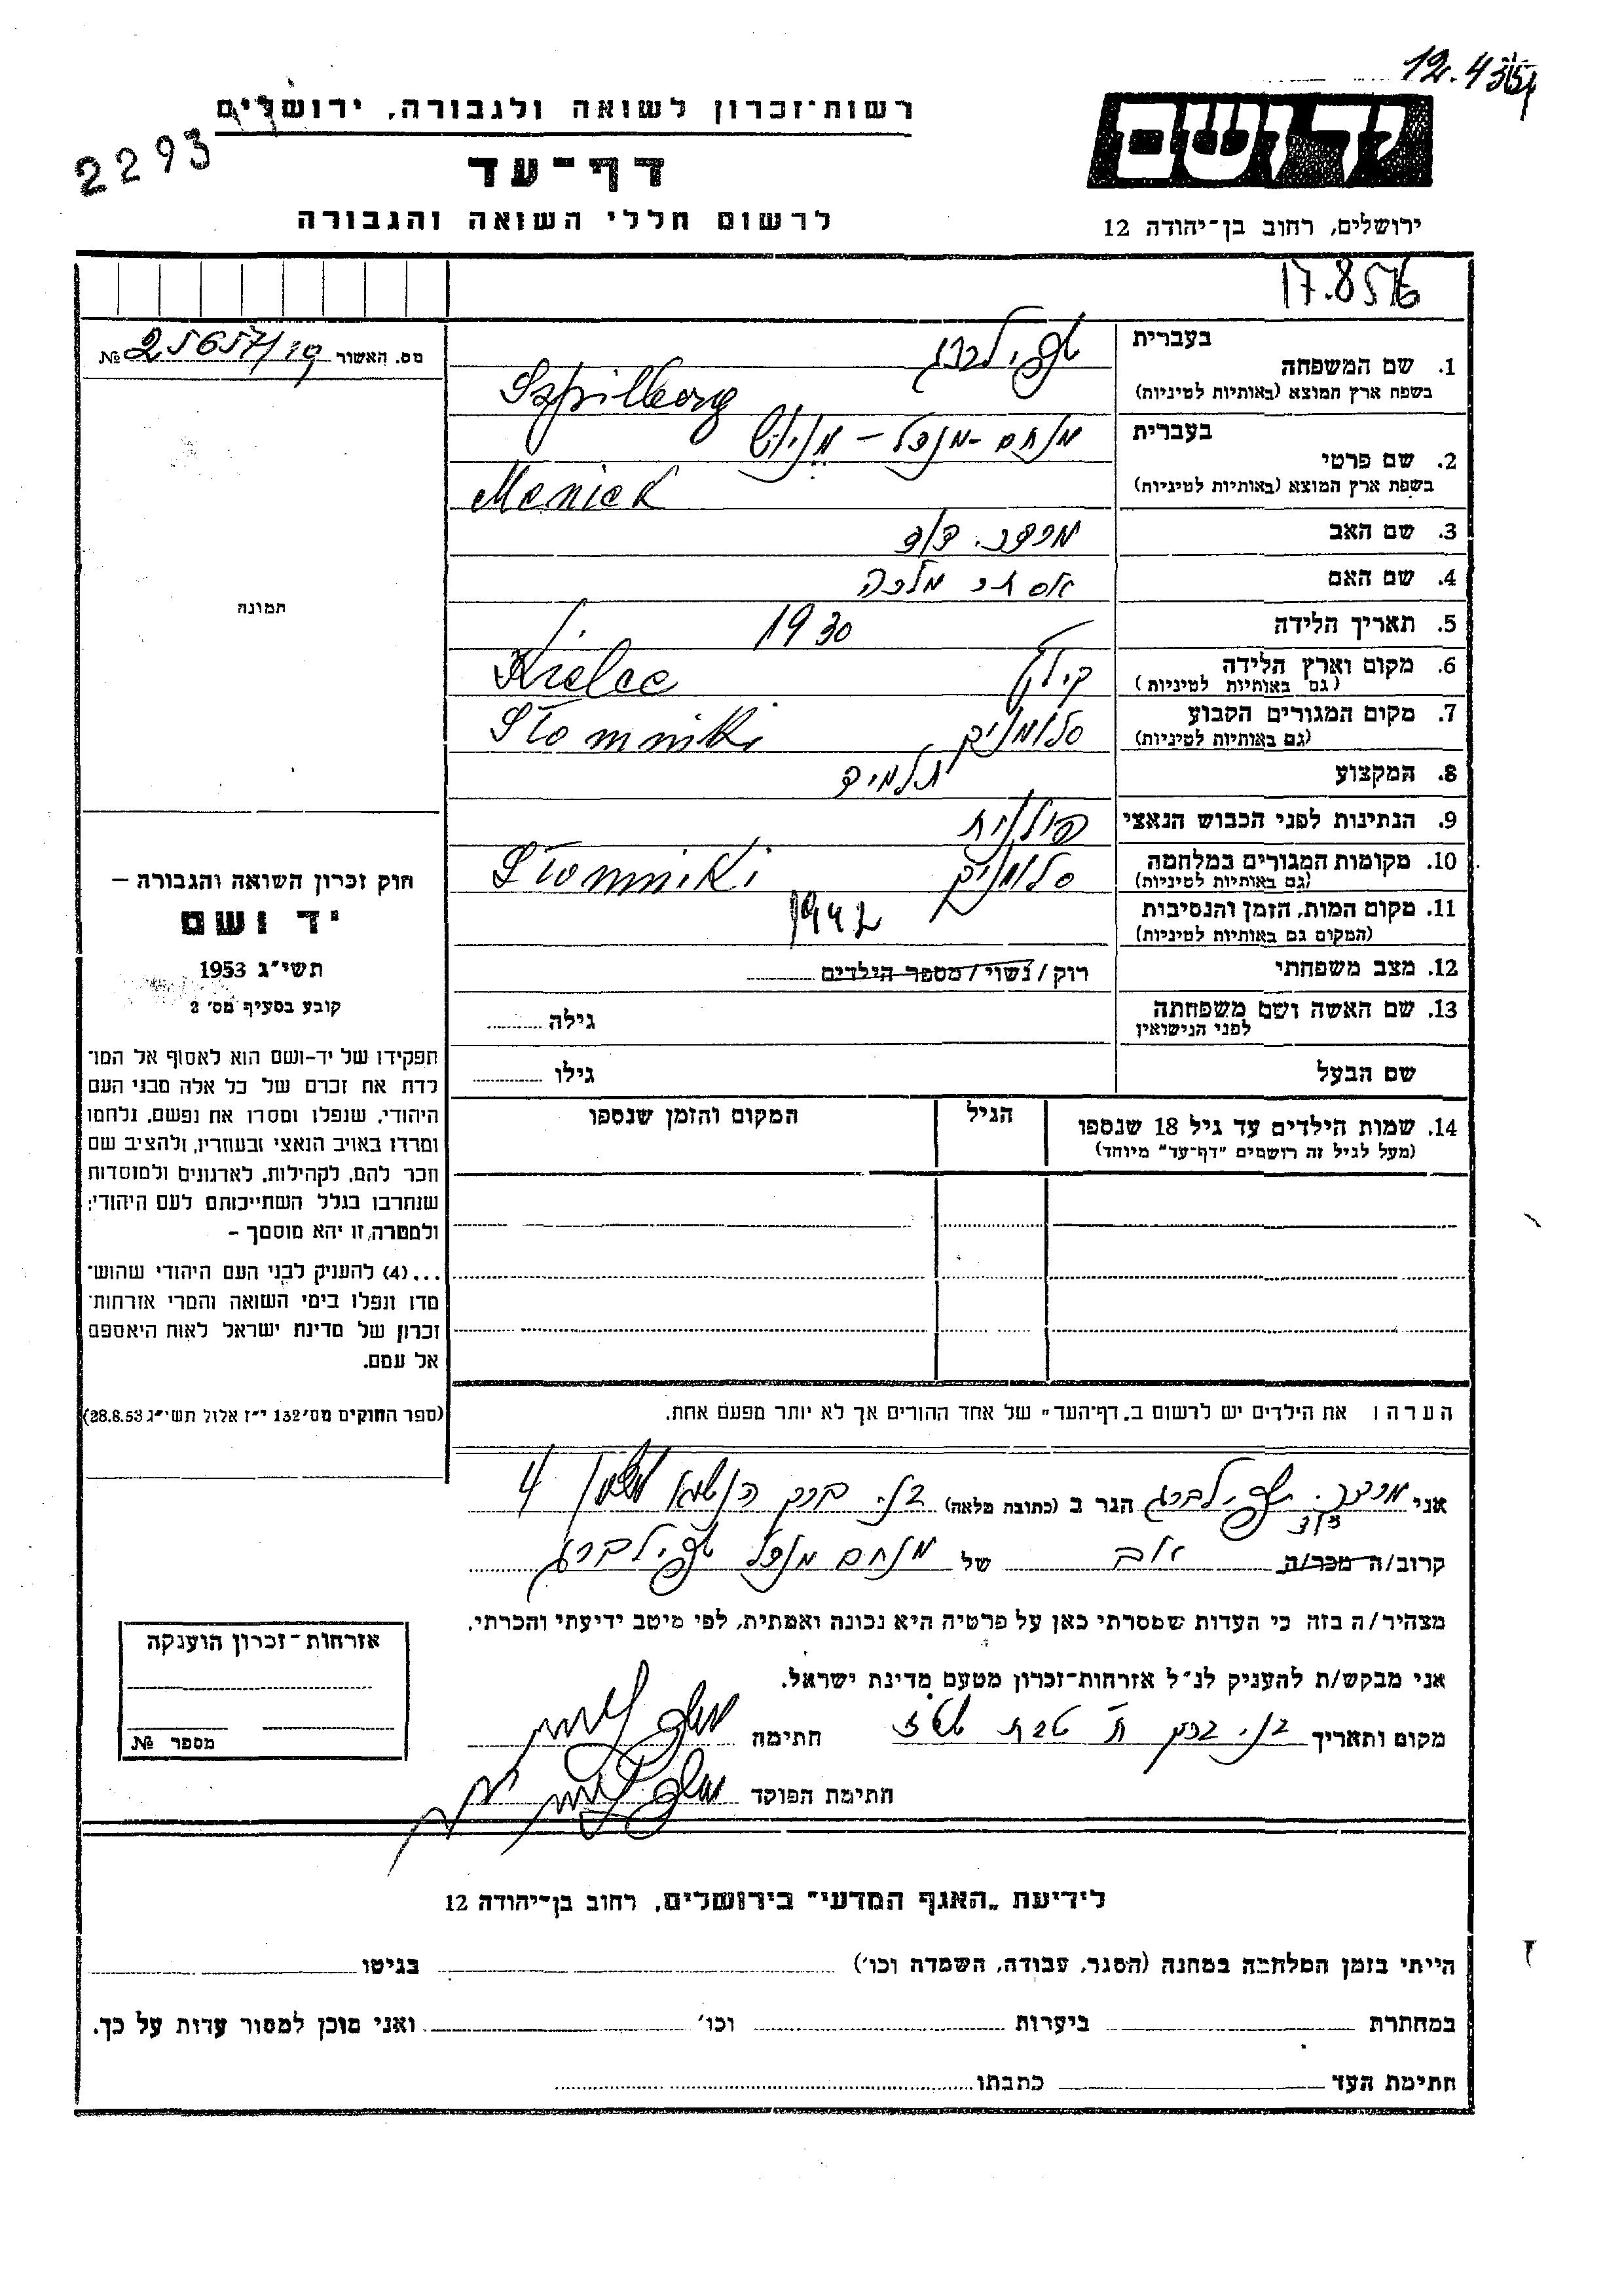 12.435
רשות־זכרון לשואה ולגבורה, ירושלים
2293
דף־עד
לרשום חללי השואה והגבורה
יד ושם
ירושלים, רחוב בן־יהודה 12
17.8576
מס. האשור № 25657/19
תמונה
בעברית
1. שם המשפחה שפילברג
בשפת ארץ המוצא (באותיות לטיניות) Szpilberg
בעברית
2. שם פרטי מנחם - מנדל -
בשפת ארץ המוצא (באותיות לטיניות) Maniek
3. שם האב דוד
4. שם האם אסתר מלכה
5. תאריך הלידה 1930
6. מקום וארץ הלידה קילץ Kielce
(גם באותיות לטיניות)
7. מקום המגורים הקבוע סלומניק Słomniki
(גם באותיות לטיניות)
8. המקצוע תלמיד
9. הנתינות לפני הכבוש הנאצי פולנית
10. מקומות המגורים במלחמה סלומניק Słomniki
(גם באותיות לטיניות)
11. מקום המות, הזמן והנסיבות 1942
(המקום גם באותיות לטיניות)
12. מצב משפחתי רוק / נשוי / מספר הילדים
13. שם האשה ושם משפחתה גילה
לפני הנישואין
שם הבעל גילו
14. שמות הילדים עד גיל 18 שנספו הגיל המקום והזמן שנספו
(מעל לגיל זה רושמים "דף־עד" מיוחד)
חוק זכרון השואה והגבורה –
יד ושם
תשי״ג 1953
קובע בסעיף מס׳ 2
תפקידו של יד-ושם הוא לאסוף אל המו־
לדת את זכרם של כל אלה מבני העם
היהודי, שנפלו ומסרו את נפשם, נלחמו
ומרדו באויב הנאצי ובעוזריו, ולהציב שם
וזכר להם, לקהילות, לארגונים ולמוסדות
שנחרבו בגלל השתייכותם לעם היהודי;
ולמטרה זו יהא מוסמך –
...(4) להעניק לבני העם היהודי שהוש־
מדו ונפלו בימי השואה והמרי אזרחות־
זכרון של מדינת ישראל לאות היאספם
אל עמם.
(ספר החוקים מס׳ 132 י״ז אלול תשי״ג 28.8.53)
הערה: את הילדים יש לרשום ב„דף־העד" של אחד ההורים אך לא יותר מפעם אחת.
אני שפילברג הגר ב (כתובת מלאה) בני ברק 4
דוד
קרוב/ה מכר/ה אב של מנחם מנדל שפילברג
מצהיר/ה בזה כי העדות שמסרתי כאן על פרטיה היא נכונה ואמתית, לפי מיטב ידיעתי והכרתי.
אני מבקש/ת להעניק לנ״ל אזרחות־זכרון מטעם מדינת ישראל.
מקום ותאריך בני ברק ח׳ טבת חתימה
חתימת הפוקד
אזרחות־זכרון הוענקה
מספר №
לידיעת „האגף המדעי" בירושלים, רחוב בן־יהודה 12
הייתי בזמן המלחמה במחנה (הסגר, עבודה, השמדה וכו׳) בגיטו
במחתרת ביערות וכו׳ ואני מוכן למסור עדות על כך.
חתימת העד כתבתו